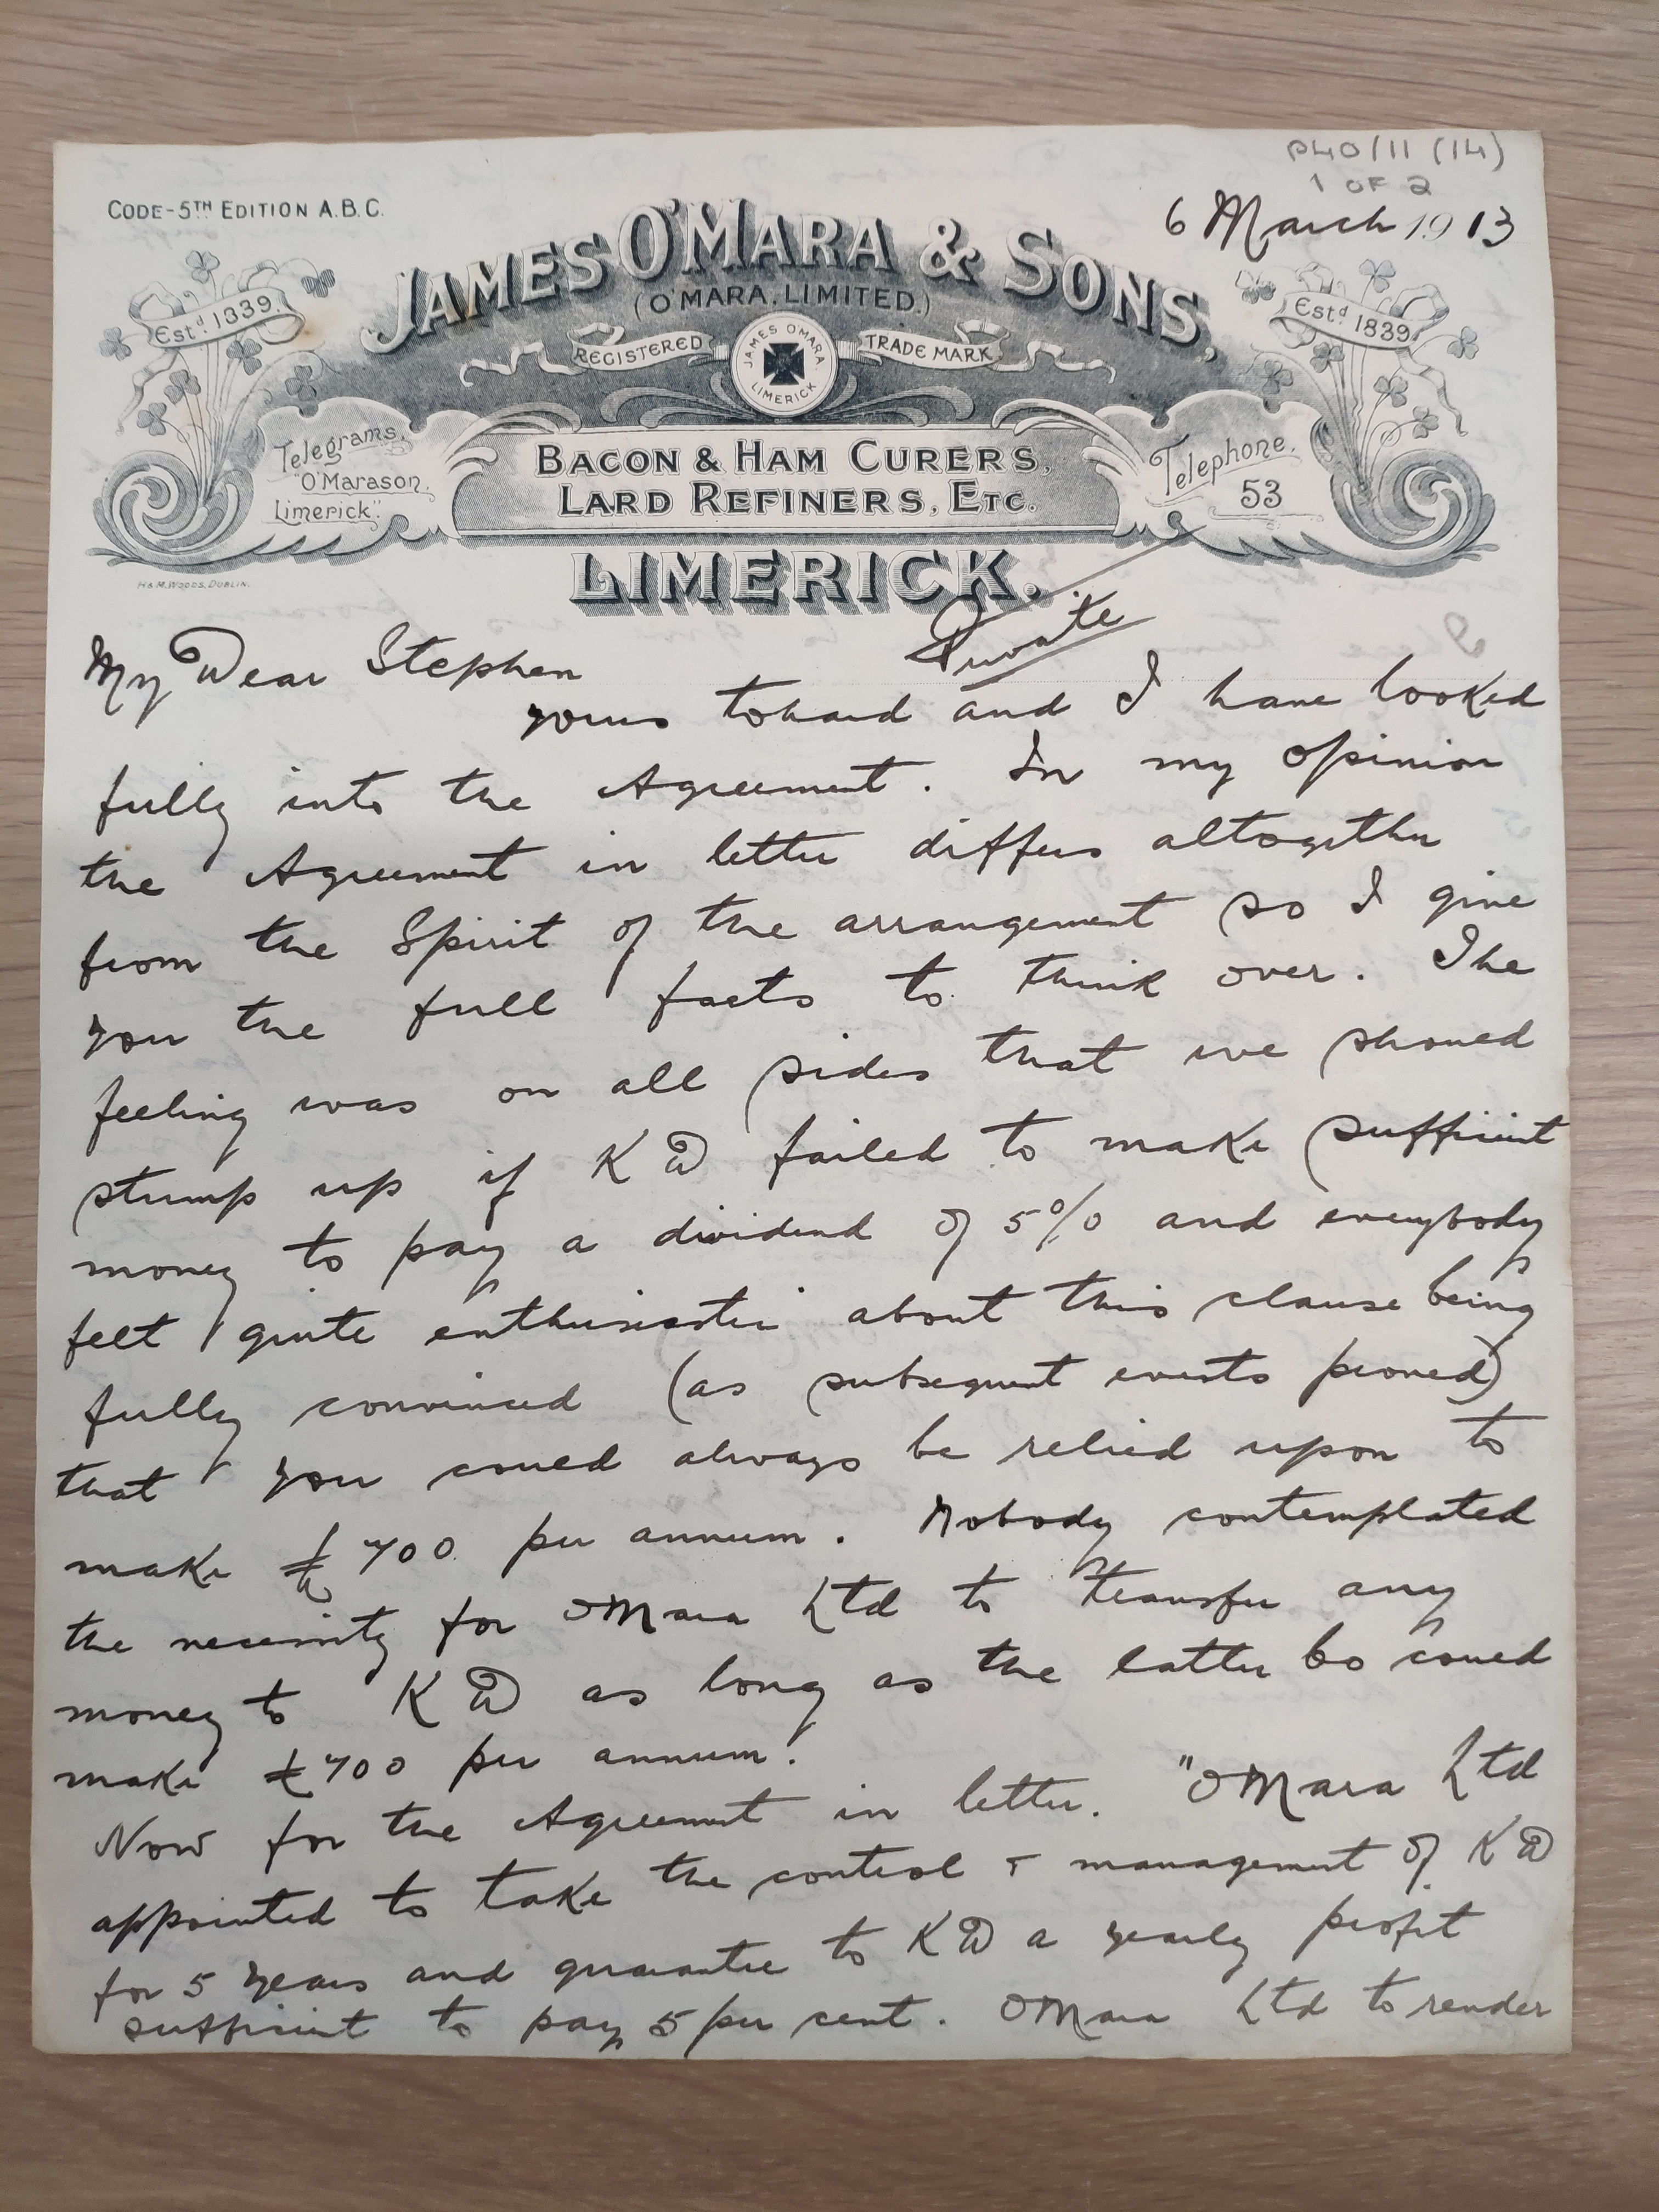 P40/11 (14)
1 OF 2
CODE-5TH EDITION A.B.C.
6 March 1913
JAMES O'MARA & SONS,
(O'MARA, LIMITED.)
Estd 1839.
Estd 1839
REGISTERED
JAMES OMARA LIMERICK
TRADE MARK
Telegrams,
"O'Marason,
Limerick".
BACON & HAM CURERS,
LARD REFINERS, ETC.
Telephone.
53
LIMERICK.
H & M. WOODS, DUBLIN.
Private
My Dear Stephen
yours to hand and I have looked
fully into the Agreement. In my opinion
the Agreement in letter differs altogether
from the Spirit of the arrangement so I give
you the full facts to think over. The
feeling was on all sides that we should
stump up if K D failed to make sufficient
money to pay a dividend of 5% and everybody
felt quite enthusiastic about this clause being
fully convinced (as subsequent events proved)
that you could always be relied upon to
make £700 per annum. Nobody contemplated
the necessity for OMara Ltd to transfer any
money to K D as long as the latter Co could
make £700 per annum.
Now for the Agreement in letter. "OMara Ltd
appointed to take the control & management of K D
for 5 years and guarantee to K D a yearly profit
sufficient to pay 5 per cent. OMara Ltd to render